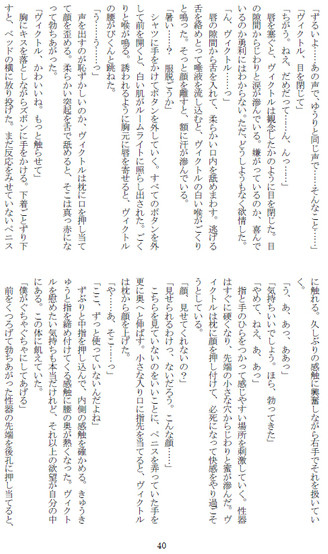 ずるいよ……あの声で、ゆうりと同じ声で……そんなこと……」
「ヴィクトル、目を閉じて」
「ちがう。ねえ、だめだって……ん、んっ……」
唇を塞ぐと、ヴィクトルは観念したかのように目を閉じた。目
の隙間からじわりと涙が滲んでいる。嫌がっているのか、喜んで
いるのか勇利にはわからない。ただ、どうしようもなく欲情した。
「ん、ヴィクトル……っ」
唇の隙間から舌を入れて、柔らかい口内を舐めまわす。逃げる
舌を絡めとって唾液を流し込むと、ヴィクトルの白い喉がごくり
と鳴った。そっと顔を離すと、額に汗が滲んでいる。
「暑……？　服脱ごうか」
シャツに手をかけてボタンを外していく。すべてのボタンを外
して前を開くと、白い肌がルームライトに照らし出された。ごく
りと喉が鳴る。誘われるように胸元に唇を寄せると、ヴィクトル
の腰がびくんと跳ねた。
「う……うっ……っ」
声を出すのが恥ずかしいのか、ヴィクトルは枕に口を押し当て
て顔を歪める。柔らかい突起を舌で舐めると、そこは真っ赤にな
って勃ちあがった。
「ヴィクトル、かわいいね。もっと触らせて」
胸にキスを落としながらズボンに手をかける。下着ごとずり下
すと、ベッドの横に放り投げた。まだ反応をみせていないペニス
に触れる。久しぶりの感触に興奮しながら右手でそれを扱いてい
く。
「う、あ、あっ、ああっ」
「気持ちいいでしょう。ほら、勃ってきた」
「やめて、ねえ、あ、あっ」
指と手のひらをつかって感じやすい場所を刺激していく。性器
はすぐに硬くなり、先端の小さな穴からじわりと蜜が滲んだ。ヴ
ィクトルは枕に顔を押し付けて、必死になって快感をやり過ごそ
うとしている。
「顔、見せてくれないの？」
「見せられるわけっ、ないだろう。こんな顔……」
こちらを見ていないのをいいことに、ペニスを弄っていた手を
更に奥へと伸ばす。小さな入り口に指先を当てると、ヴィクトル
は枕から顔を上げた。
「や……あ、そこ……っ」
「ここ、ずっと使っていないんだよね」
ずぶりと中指を押し込んで、内側の感触を確かめる。きゅうき
ゅうと指を締め付けてくる感触に腰の奥が熱くなった。ヴィクト
ルを慰めたい気持ちも本当だけれど、それ以上の欲望が自分の中
にある。この体に飢えていた。
「僕がぐちゃぐちゃにしてあげる」
前をくつろげて勃ちあがった性器の先端を後孔に押し当てると、
40